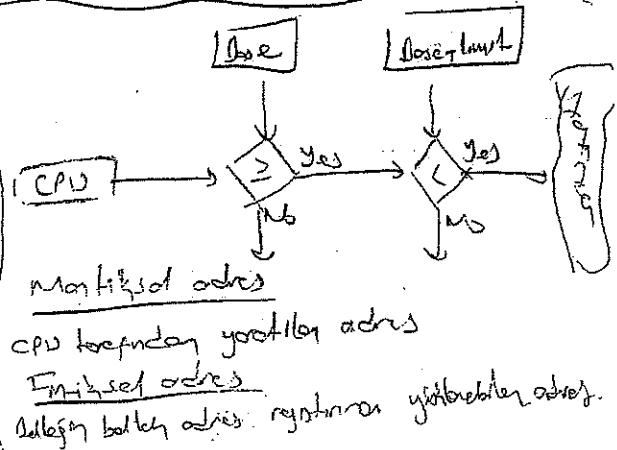 Base
Base+limit
CPU
≥
Yes
<
Yes
No
No
Mantıksal adres
CPU tarafından yaratılan adres
Fiziksel adres
Belleğin adres yüklenebilen adres.